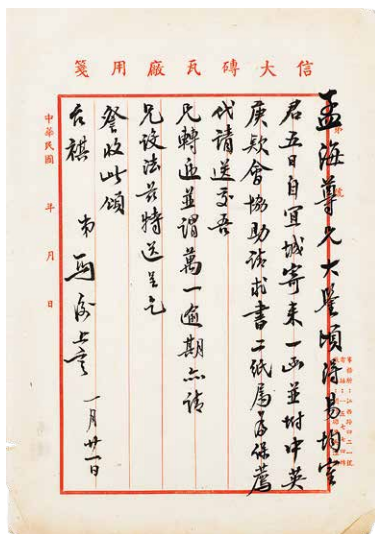 信大磚瓦廠用箋
孟海尊兄大鑒頃得易均室
君五日自宜城寄來一函並附中英
庚款會協助請求書二紙屬為保薦
代請送交吾
兄轉遞並謂萬一逾期亦請
兄設法茲特送呈乞
詧收此頌
台祺 弟馬衡上言
一月廿一日
中華民國 年 月 日